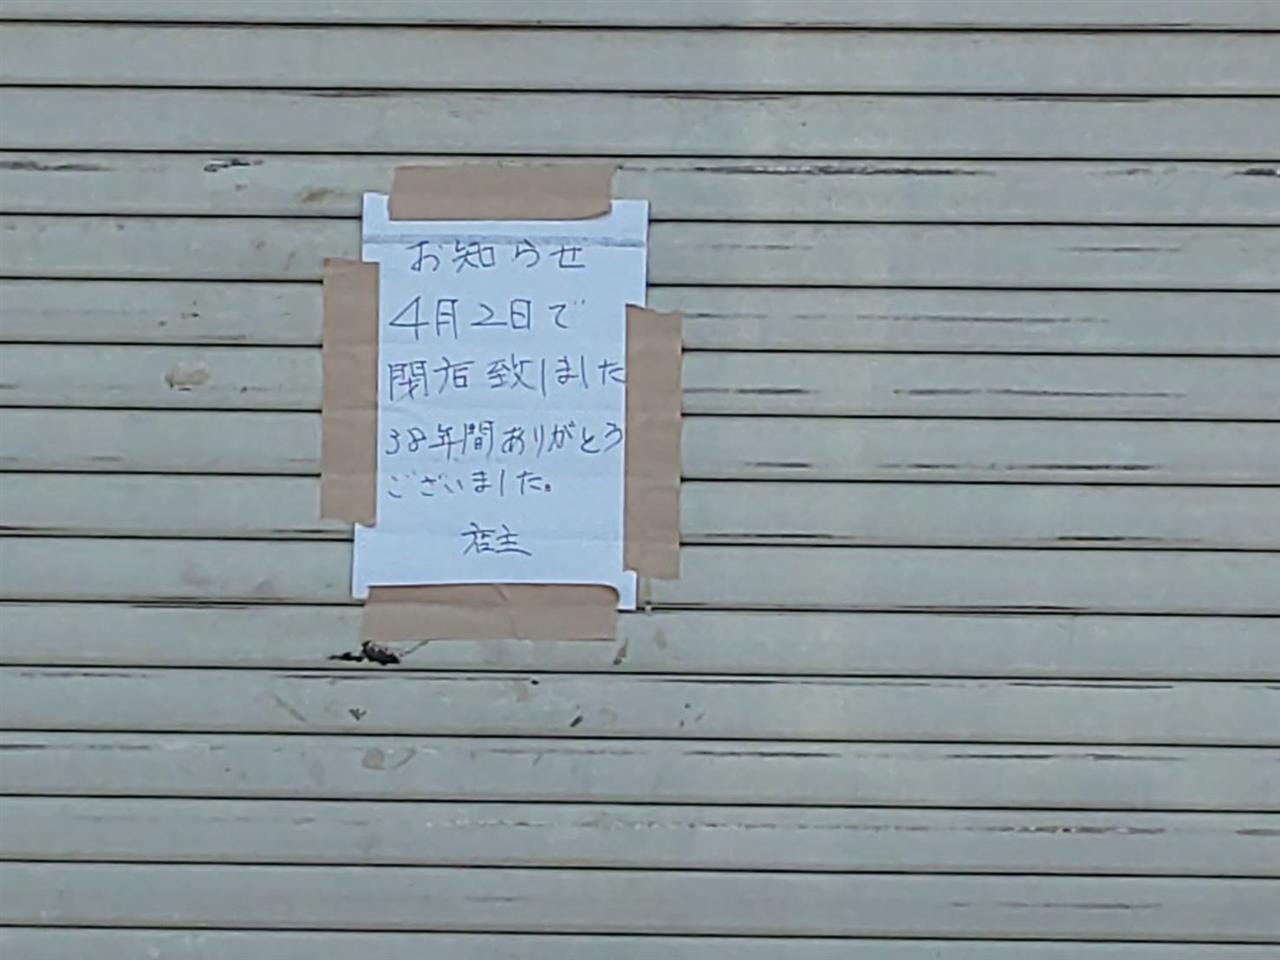 お知らせ
4月2日で
閉店致しました
38年間ありがとう
ございました。
店主